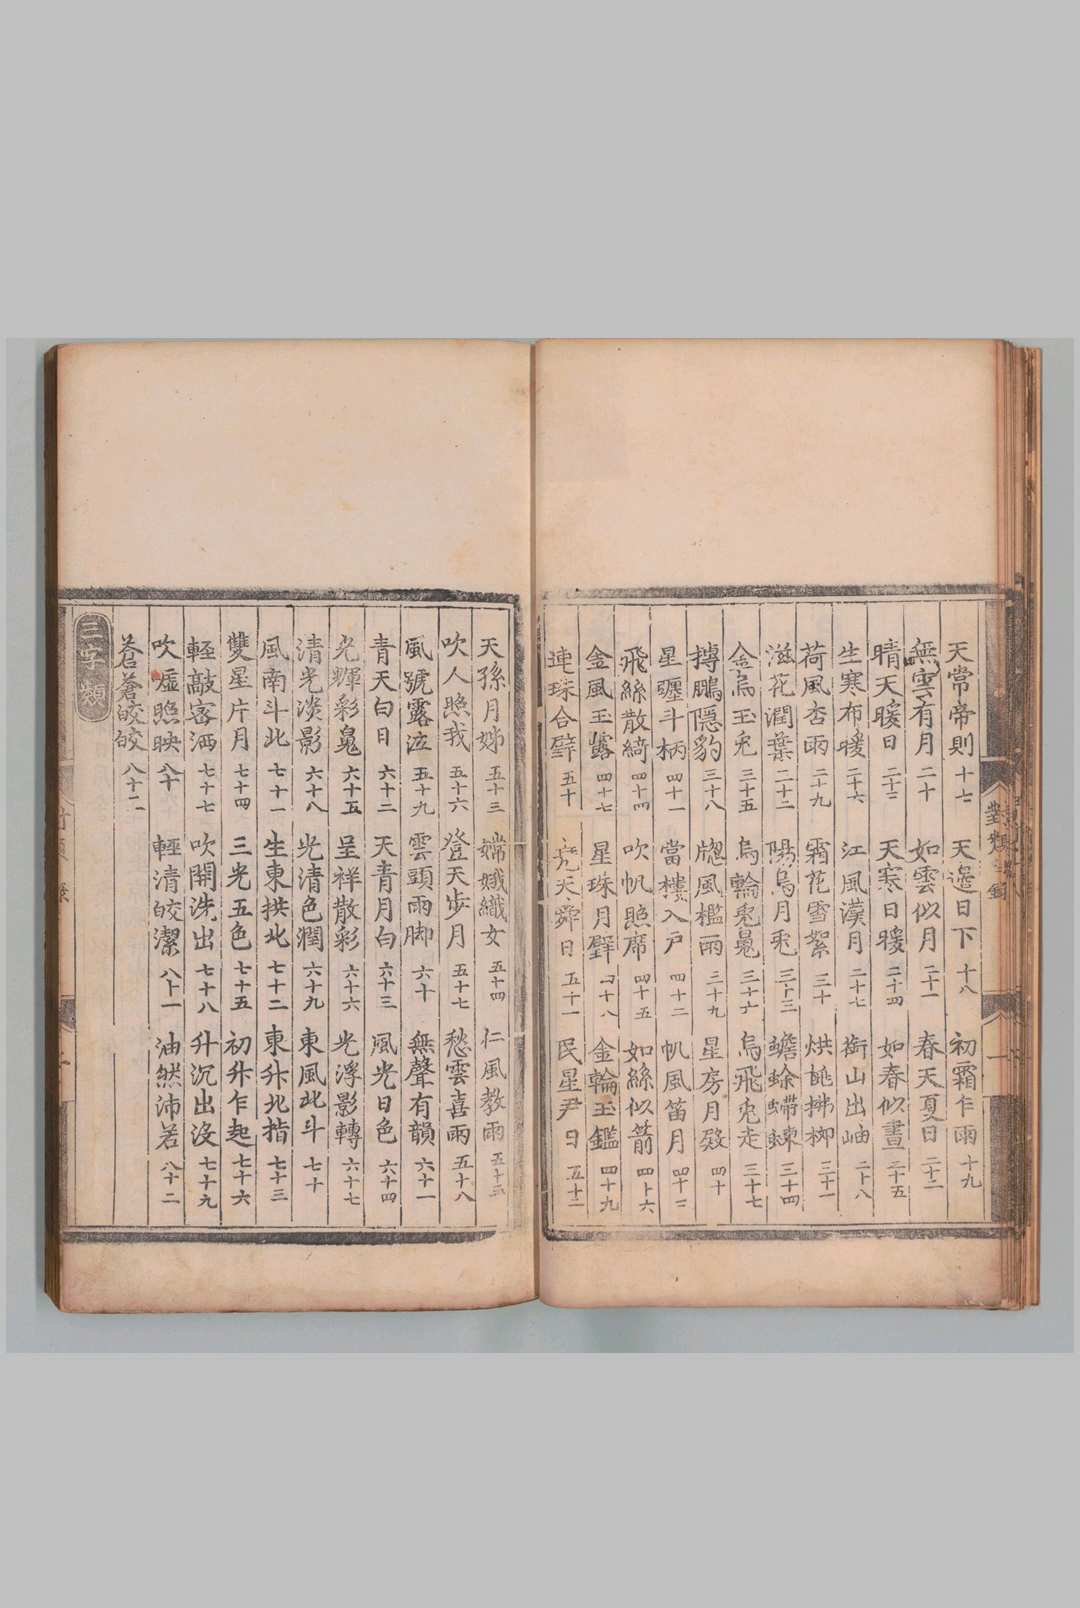 天常帝則 十七 天邊日下 十八 初霜乍雨 十九
無雲有月 二十 如雲似月 二十一 春天夏日 二十二
晴天暖日 二十三 天寒日暖 二十四 如春似晝 二十五
生寒布暖 二十六 江風漢月 二十七 銜山出岫 二十八
荷風杏雨 二十九 霜花雪絮 三十 烘桃拂柳 三十一
滋花潤葉 三十二 陽烏月兎 三十三 蟾蜍螮蝀 三十四
金烏玉兎 三十五 烏輪兎魄 三十六 烏飛兎走 三十七
摶鵬隱豹 三十八 牕風檻雨 三十九 星房月殿 四十
星躔斗柄 四十一 當樓入戶 四十二 帆風笛月 四十三
飛絲散綺 四十四 吹帆照席 四十五 如絲似箭 四十六
金風玉露 四十七 星珠月璧 四十八 金輪玉鑑 四十九
連珠合璧 五十 堯天舜日 五十一 民星尹日 五十二
天孫月姊 五十三 嫦娥織女 五十四 仁風教雨 五十五
吹人照我 五十六 登天步月 五十七 愁雲喜雨 五十八
風號露泣 五十九 雲頭雨脚 六十 無聲有韻 六十一
青天白日 六十二 天青月白 六十三 風光日色 六十四
光輝彩魄 六十五 呈祥散彩 六十六 光浮影轉 六十七
清光淡影 六十八 光清色潤 六十九 東風北斗 七十
風南斗北 七十一 生東拱北 七十二 東升北指 七十三
雙星片月 七十四 三光五色 七十五 初升乍起 七十六
輕敲密洒 七十七 吹開洗出 七十八 升沉出沒 七十九
吹噓照映 八十 輕清皎潔 八十一 油然沛若 八十二
蒼蒼皎皎 八十二
三字類